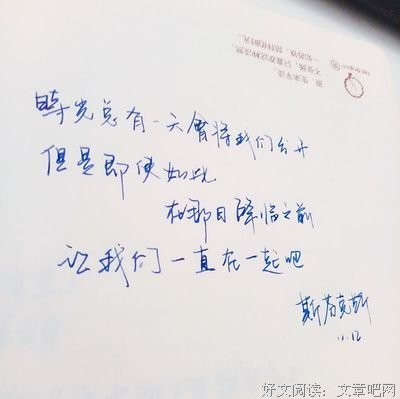 時光总有一天會将我们分开
但是即使如此
在那日降临之前
让我们一直在一起吧
斯芬克斯
11.12
好文阅读：文章吧网